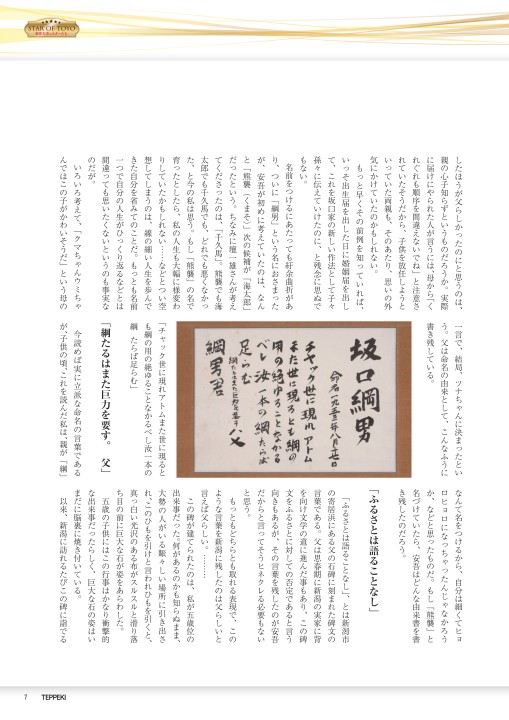 STAR OF TOYO
したほうが父らしかったのにと思うのは、
親の心子知らずというものだろうか。実際
に届けにやられた人が言うには、母から「く
れぐれも順序を間違えないでね」と注意さ
れていたそうだから、子供を放任しようと
いっていた両親も、そのあたり、思いの外
気にかけていたのかもしれない。
もっと早くその前例を知っていれば、
いっそ出生届を出した日に婚姻届を出し
て、これを坂口家の新しい作法として子々
孫々に伝えていたのに、と残念に思ぬで
もない。
名前をつけるにあたっても紆余曲折があ
り、ついに「綱男」という名におさまった
が、安吾が初めに考えていたのは、なん
と「熊襲（くまそ）」次の候補が「海太郎」
だったという。ちなみに檀一雄さんが考え
てくださったのは、「千久馬」。熊襲でも海
太郎でも千久馬でも、どれでも悪くなかっ
た、と今の私は思う。もし「熊襲」の名で
育ったとしたら、私の人生も大幅に様変わ
りしていたかもしれない……などとつい空
想してしまうのは、線の細い人生を歩んで
きた自分を省みてのことだ。もっとも名前
一つで自分の人生がひっくり返るなどとは
間違っても思いたくないというのも事実な
のだが。
いろいろ考えて、「クマちゃんウミちゃ
んではこの子がかわいそうだ」という母の
一言で、結局、ツナちゃんに決まったとい
う。父は命名の由来として、こんなふうに
書き残している。
坂口綱男
命名一九五三年八月廿七日
チャック世に現れアトム
また世に現るとも綱の
用の絶ゆることなかる
べし汝一本の綱たらば
足らむ
綱たるはまた巨力を要す 父
綱男君
「チャック世に現れアトムまた世に現ると
も綱の用の絶ゆることなかるべし汝一本の
綱 たらば足らむ」
「綱たるはまた巨力を要す。 父」
今読めば実に立派な命名の言葉である
が、子供の頃、これを読んだ私は、親が「綱」
なんて名をつけるから、自分は細くてヒョ
ロヒョロになっちゃったんじゃなかろう
か、などと思ったものだ。もし「熊襲」と
名づけていたら、安吾はどんな由来書を書
き残したのだろう。
「ふるさとは語ることなし」
「ふるさとは語ることなし」、とは新潟市
の寄居浜にある父の石碑に刻まれた碑文の
言葉である。父は思春期に新潟の実家に背
を向け文学の道に進んだ事もあり、この碑
文をふるさとに対しての否定であると言う
向きもあるが、その言葉を残したのが安吾
だからと言ってそうヒネクレる必要もない
と思う。
もっともどちらとも取れる表現で、この
ような言葉を新潟に残したのは父らしいと
言えば父らしい。………
この碑が建てられたのは、私が五歳位の
出来事だった。何があるのかも知らぬまま、
大勢の人がいる賑々しい場所に引き出さ
れ、このひもを引けと言われひもを引くと、
真っ白い光沢のある布がスルスルと滑り落
ち目の前に巨大な石が姿をあらわした。
五歳の子供にはこの行事はかなり衝撃的
な出来事だったらしく、巨大な石の姿はい
まだに脳裏に焼き付いている。
以来、新潟に訪れるたびこの碑に詣でる
7 TEPPEKI